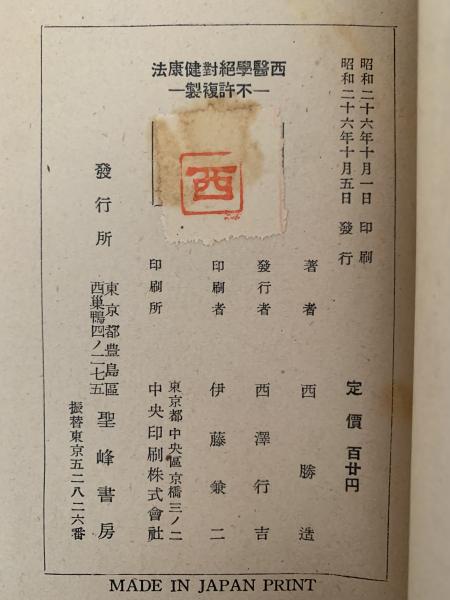 西醫學絕對健康法
―不許複製―
西
昭和二十六年十月一日 印刷
昭和二十六年十月五日 發行
定價 百廿円
著者 西勝造
發行者 西澤行吉
印刷者 伊藤兼二
東京都中央區京橋三ノ二
印刷所 中央印刷株式會社
東京都豊島區
西巣鴨四ノ二七五
發行所 聖峰書房
振替東京五二八二六番
MADE IN JAPAN PRINT